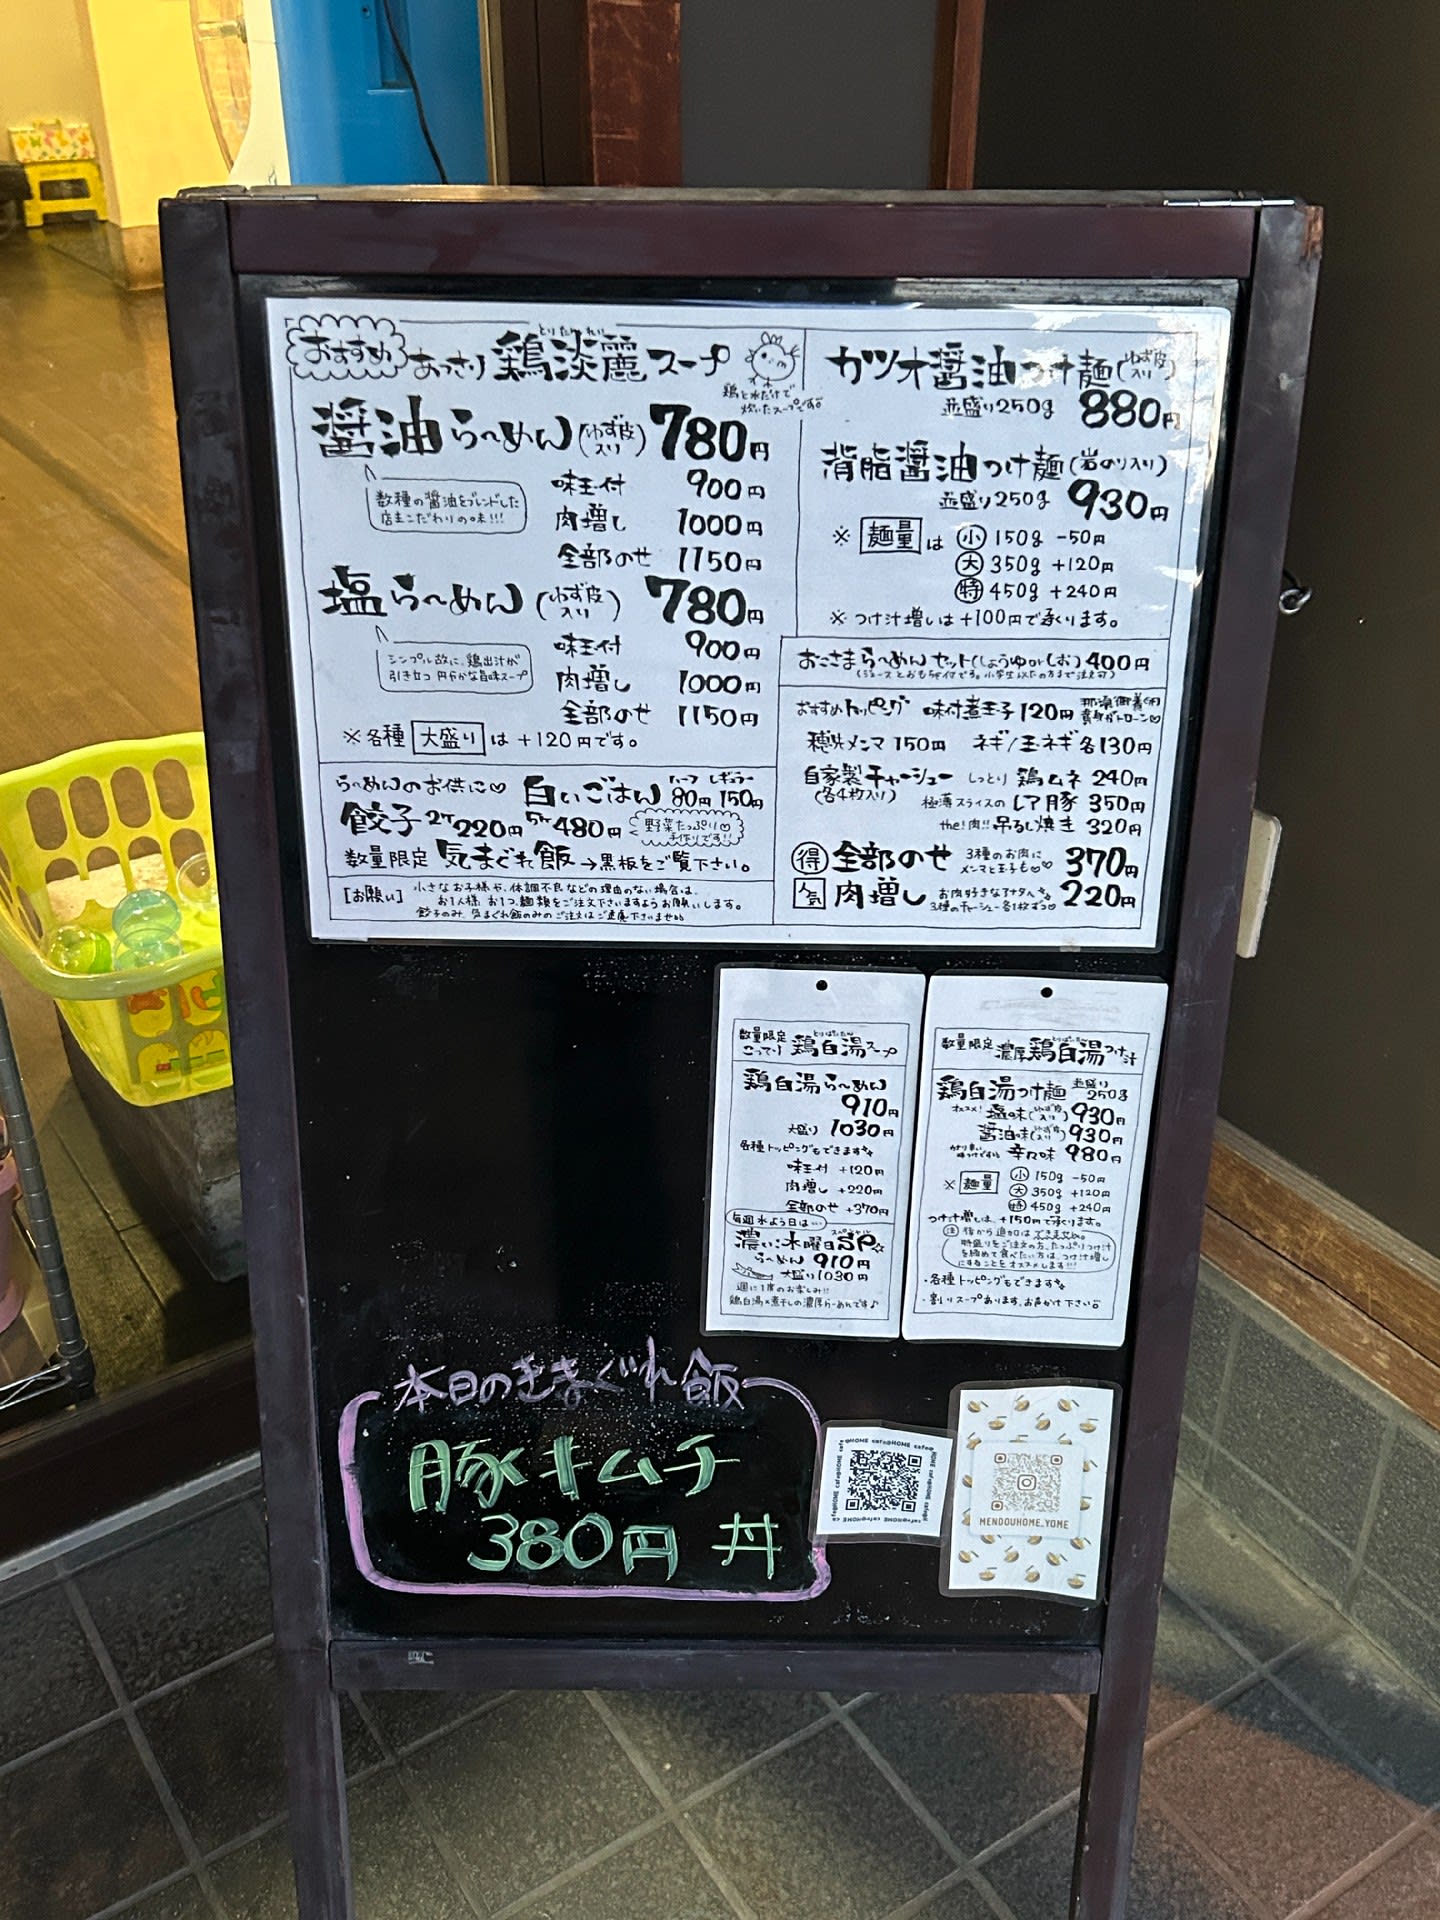 おすすめ
あっさり 鶏淡麗スープ
とりたんれい
鶏と水だけで
炊いたスープです。
醤油らーめん(ゆず皮入り) 780円
数種の醤油をブレンドした
店主こだわりの味!!!
味玉付 900円
肉増し 1000円
全部のせ 1150円
塩らーめん(ゆず皮入り) 780円
シンプル故に、鶏出汁が
引き立つ円やかな旨味スープ
味玉付 900円
肉増し 1000円
全部のせ 1150円
※各種 大盛り は +120円です。
らーめんのお供に♡ 白いごはん ハーフ 80円 レギュラー 150円
餃子 2ケ 220円 5ケ 480円 野菜たっぷり♡手作りです!!
数量限定 気まぐれ飯 →黒板をご覧下さい。
[お願い] 小さなお子様や、体調不良などの理由のない場合は、
お1人様、お1つ、麺類をご注文下さいますようお願いします。
餃子のみ、気まぐれ飯のみのご注文はご遠慮下さいませ
カツオ醤油つけ麺(ゆず皮入り)
並盛り250g 880円
背脂醤油つけ麺(岩のり入り)
並盛り250g 930円
※ 麺量 は 小 150g -50円
大 350g +120円
特 450g +240円
※ つけ汁増しは +100円で承ります。
おこさまらーめんセット(しょうゆorしお) 400円
(ジュースとおもちゃ付です。小学生以下の方まで注文可)
おすすめトッピング 味付煮玉子 120円 那須御養卵
穂先メンマ 150円 ネギ/玉ネギ 各130円
自家製チャーシュー しっとり 鶏ムネ 240円
(各4枚入り) 極薄スライスの レア豚 350円
the!肉!! 吊るし焼き 320円
得 全部のせ 3種のお肉にメンマと玉子も♡ 370円
人気 肉増し お肉好きなアナタへ 3種のチャーシュー各1枚ずつ♡ 220円
数量限定 こってり 鶏白湯スープ
とりぱいたん
鶏白湯らーめん
910円
大盛り 1030円
各種トッピングもできます
味玉付 +120円
肉増し +220円
全部のせ +370円
毎週木よう日は…
濃い:木曜日SP☆
スペシャル
らーめん 910円
大盛り 1030円
週に1度のお楽しみ!!
鶏白湯×煮干しの濃厚らーめんです♪
数量限定 濃厚 鶏白湯つけ汁
とりぱいたん
鶏白湯つけ麺 並盛り 250g
オススメ! 塩味(ゆず皮入り) 930円
醤油味(ゆず皮入り) 930円
辛々味 980円
※ 麺量 小 150g -50円
大 350g +120円
特 450g +240円
つけ汁増しは、+150円で承ります。
注 後から追加は できません。
特盛りをご注文の方、たっぷりつけ汁
を絡めて食べたい方は、つけ汁増し
にすることをオススメします!!!
・各種トッピングもできます
・割りスープあります。お声かけ下さい
本日のきまぐれ飯
豚キムチ
380円 丼
cafe@HOME
MENDOUHOME_YOME